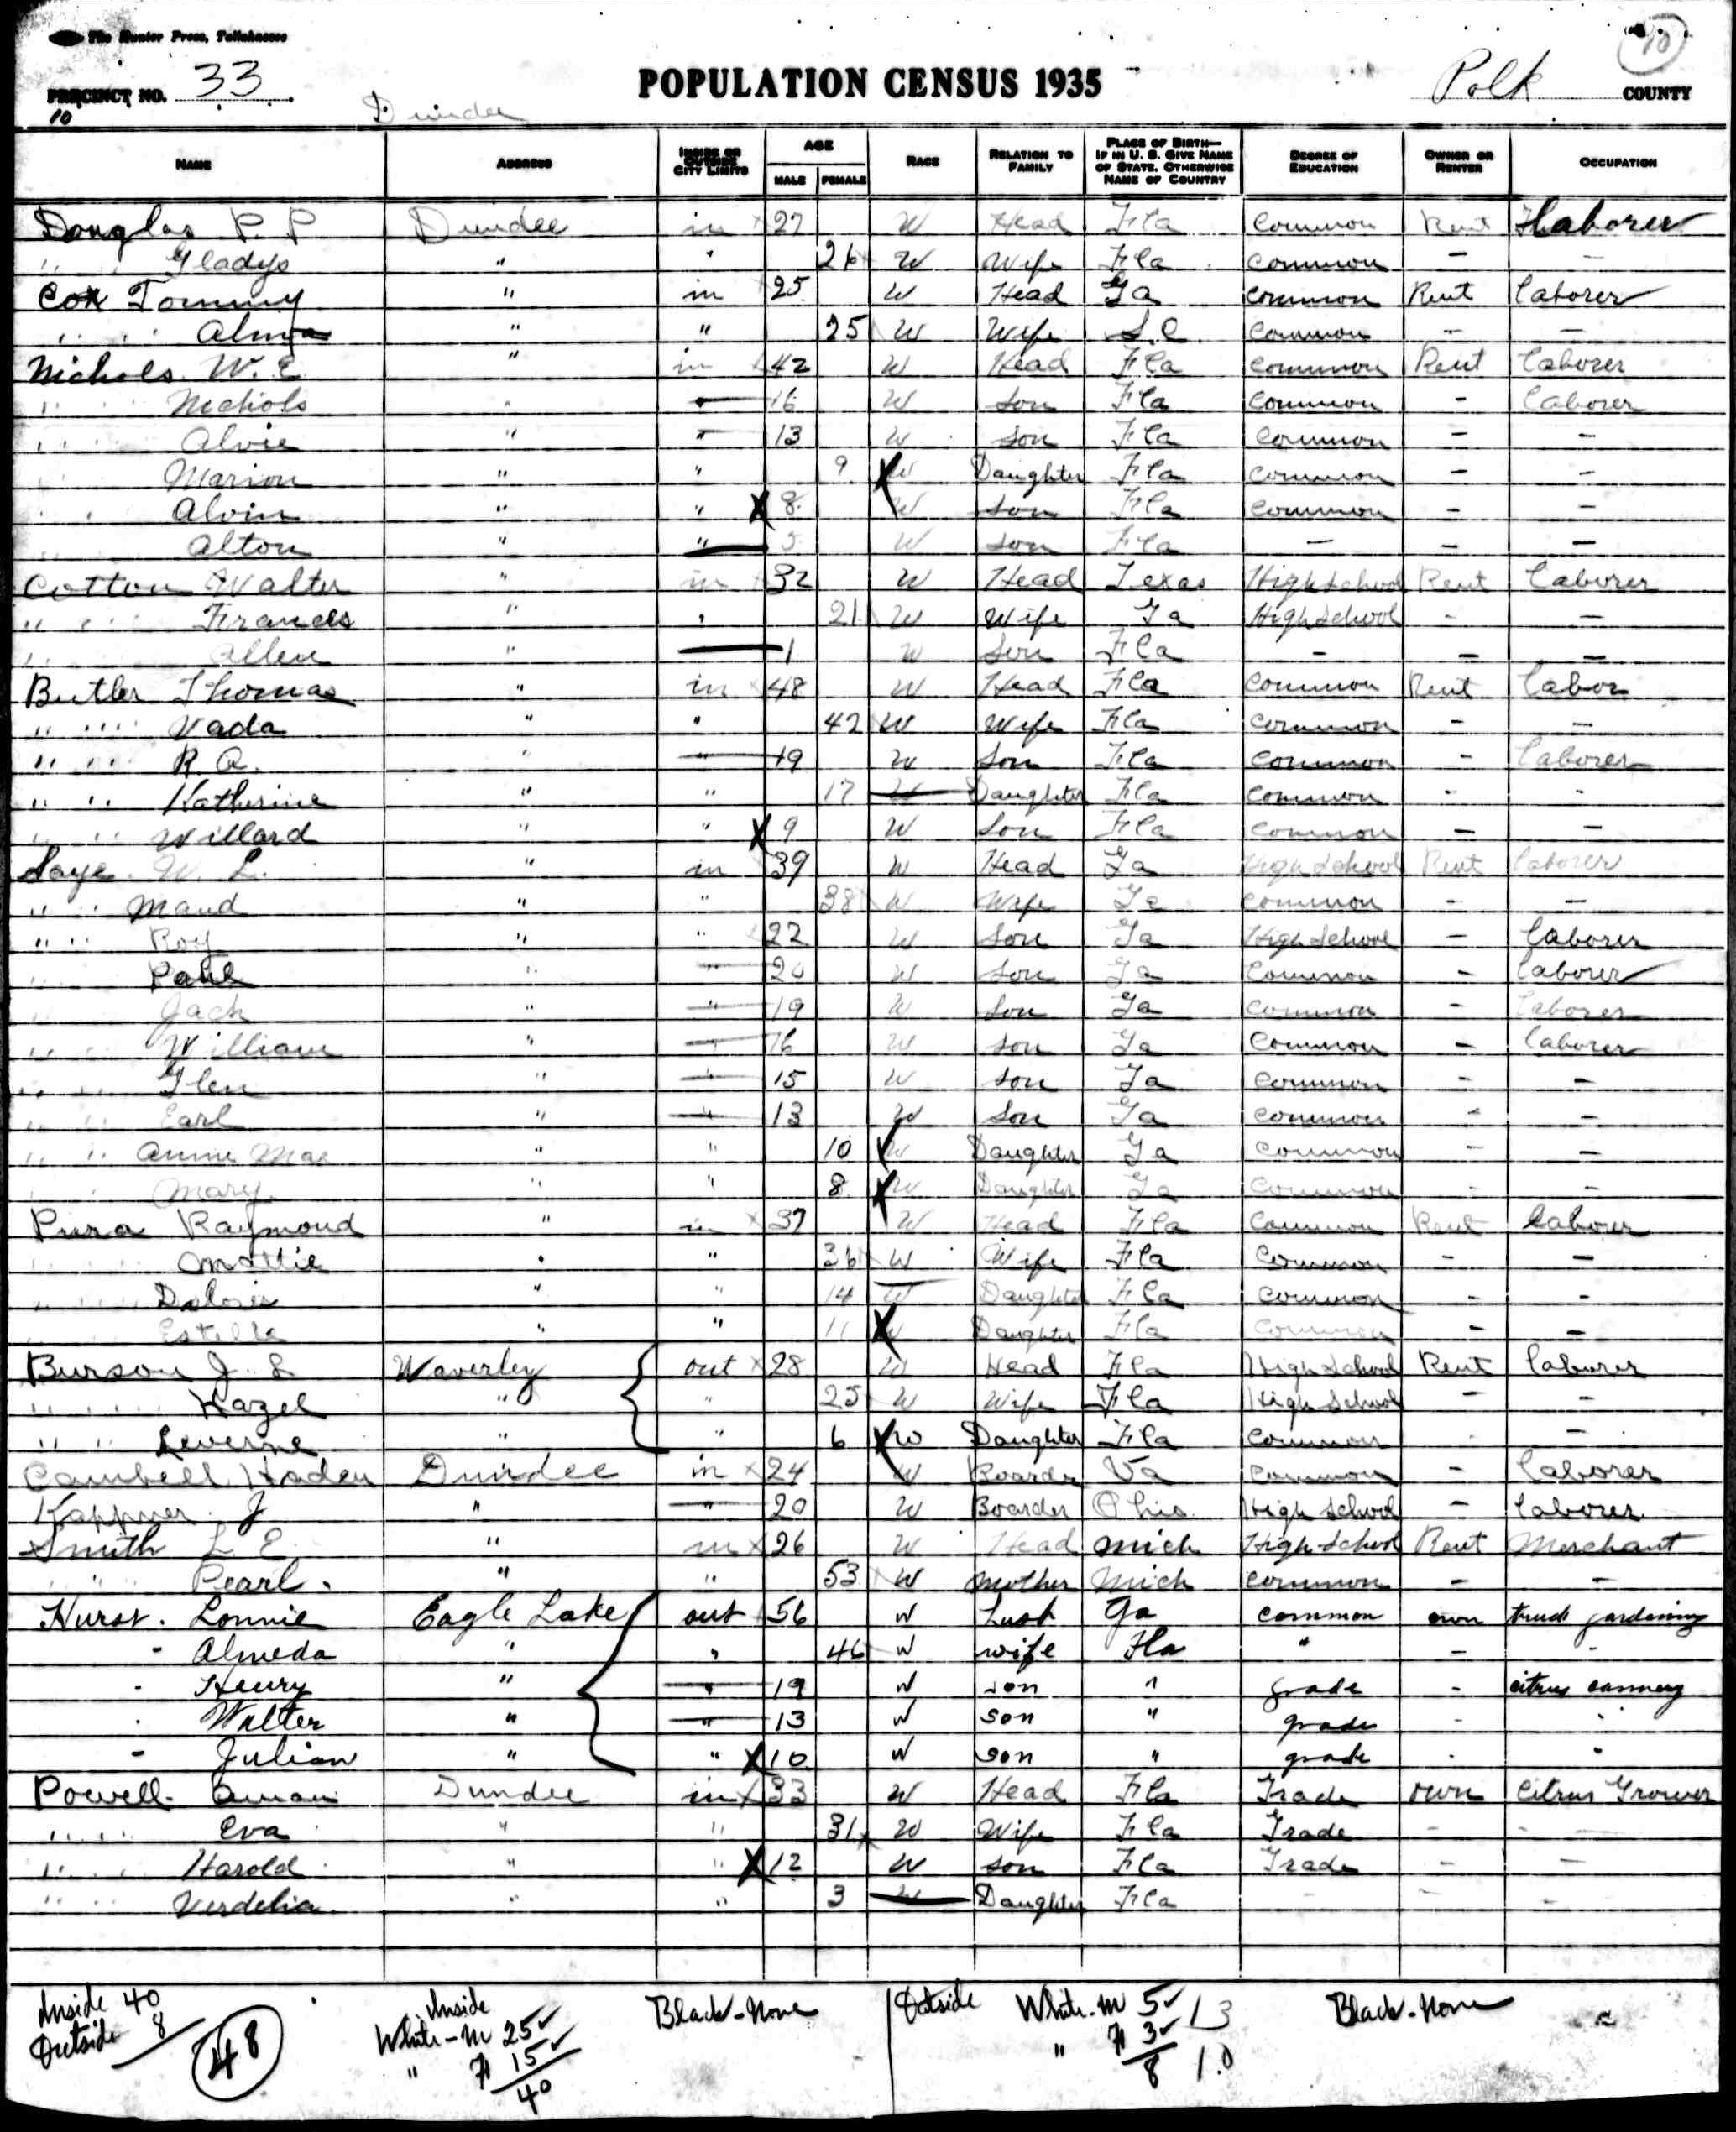 The Hunter Press, Tallahassee
10
PRECINCT NO. 33 POPULATION CENSUS 1935 Polk COUNTY
10 Dundee
NAME ADDRESS INSIDE OR OUTSIDE CITY LIMITS AGE MALE FEMALE RACE RELATION TO FAMILY PLACE OF BIRTH— IF IN U. S. GIVE NAME OF STATE, OTHERWISE NAME OF COUNTRY DEGREE OF EDUCATION OWNER OR RENTER OCCUPATION
Douglas P. P Dundee in x 27 W Head Fla Common Rent laborer
" " Gladys " " 26 W Wife Fla Common - -
Cox Tommy " in 25 W Head Ga Common Rent laborer
" " Alma " " 25 W Wife S.C. Common - -
Nichols W. E " in x 42 W Head Fla Common Rent laborer
" " Nichols " " 16 W Son Fla Common - laborer
" " Alvie " " 13 W Son Fla Common - -
" " Marion " " 9 W Daughter Fla Common - -
" " Alvin " " X 8 W Son Fla Common - -
" " Alton " " 5 W Son Fla - - -
Cotton Walter " in x 32 W Head Texas High School Rent laborer
" " Francis " " 21 W Wife Ga High School - -
" Allen " 1 W Son Fla - - -
Butler Thomas " in x 48 W Head Fla Common Rent labor
" " Vada " " 42 W Wife Fla Common - -
" " R A. " " 19 W Son Fla Common - laborer
" " Katherine " " 17 W Daughter Fla Common - -
" " Willard " " X 9 W Son Fla Common - -
Saye W. L. " in 39 W Head Ga High School Rent laborer
" " Maud " " 38 W Wife Ga Common - -
" " Roy " " 22 W Son Ga High School - laborer
" Paul " " 20 W Son Ga Common - laborer
" Jack " " 19 W Son Ga Common - laborer
" " William " " 16 W Son Ga Common - laborer
" " Glen " " 15 W Son Ga Common - -
" " Earl " " 13 W Son Ga Common - -
" " Annie Mae " " 10 W Daughter Ga Common - -
" " Mary " " 8 W Daughter Ga Common - -
Raymond " in x 37 W Head Fla Common Rent laborer
" " Mattie " " 36 W Wife Fla Common - -
" " Daloris " " 14 W Daughter Fla Common - -
" Estella " " 11 W Daughter Fla Common - -
Burson J. L Waverley out x 28 W Head Fla High School Rent laborer
" " Hazel " " 25 W Wife Fla High School - -
" " Leverne " " 6 W Daughter Fla Common - -
Cambell Haden Dundee in x 24 W Boarder Va Common - laborer
Kappner J " " 20 W Boarder Ohio High School - laborer
Smith L E " in x 26 W Head Mich High School Rent Merchant
" " Pearl. " " 53 W Mother Mich Common - -
Hurst. Lonnie Eagle Lake out 56 W Husb Ga Common own truck gardening
- Almeda " " 46 W wife Fla " - -
- Henry " " 19 W son " grade - citrus cannery
- Walter " " 13 W son " grade - -
- Julian " " X 10 W son " grade - -
Powell Dundee in x 33 W Head Fla Grade own Citrus Grower
" " Eva " " 31 W Wife Fla Grade - -
" " Harold " " X 12 W Son Fla Grade - -
" " Verdelia " " 3 W Daughter Fla - - -
Inside 40 Inside Black - None Outside White - M 5 13 Black - None
Outside 8 White - M 25 " F 3
48 " F 15 8 10
40